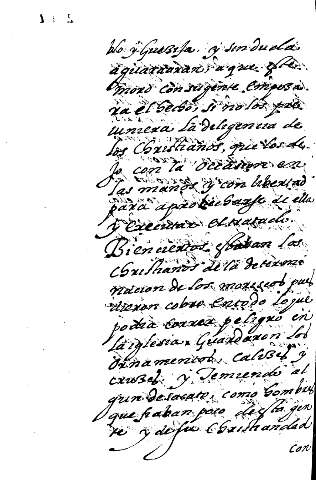 blo y Guerra, y sin duda
aguardaran, a que este
moro con su gente empeza
ra el hecho, si no los pre
viniera la deligencia de
los Christianos, que los de
Jo con la occasion en
las manos y con libertad
para aprobecharse de ella
y executar el tratado
Bien ciertos estaban los
Christianos de la determi
nacion de los moriscos pu
sieron cobro en todo lo que
podia correr peligro en
la iglesia. Guardaron los
Ornamentos, Calizes y
cruzes, y Temiendo al
gun desacato, como hombres
que fiaban poco de esta gen
te y de su Christiandad
con